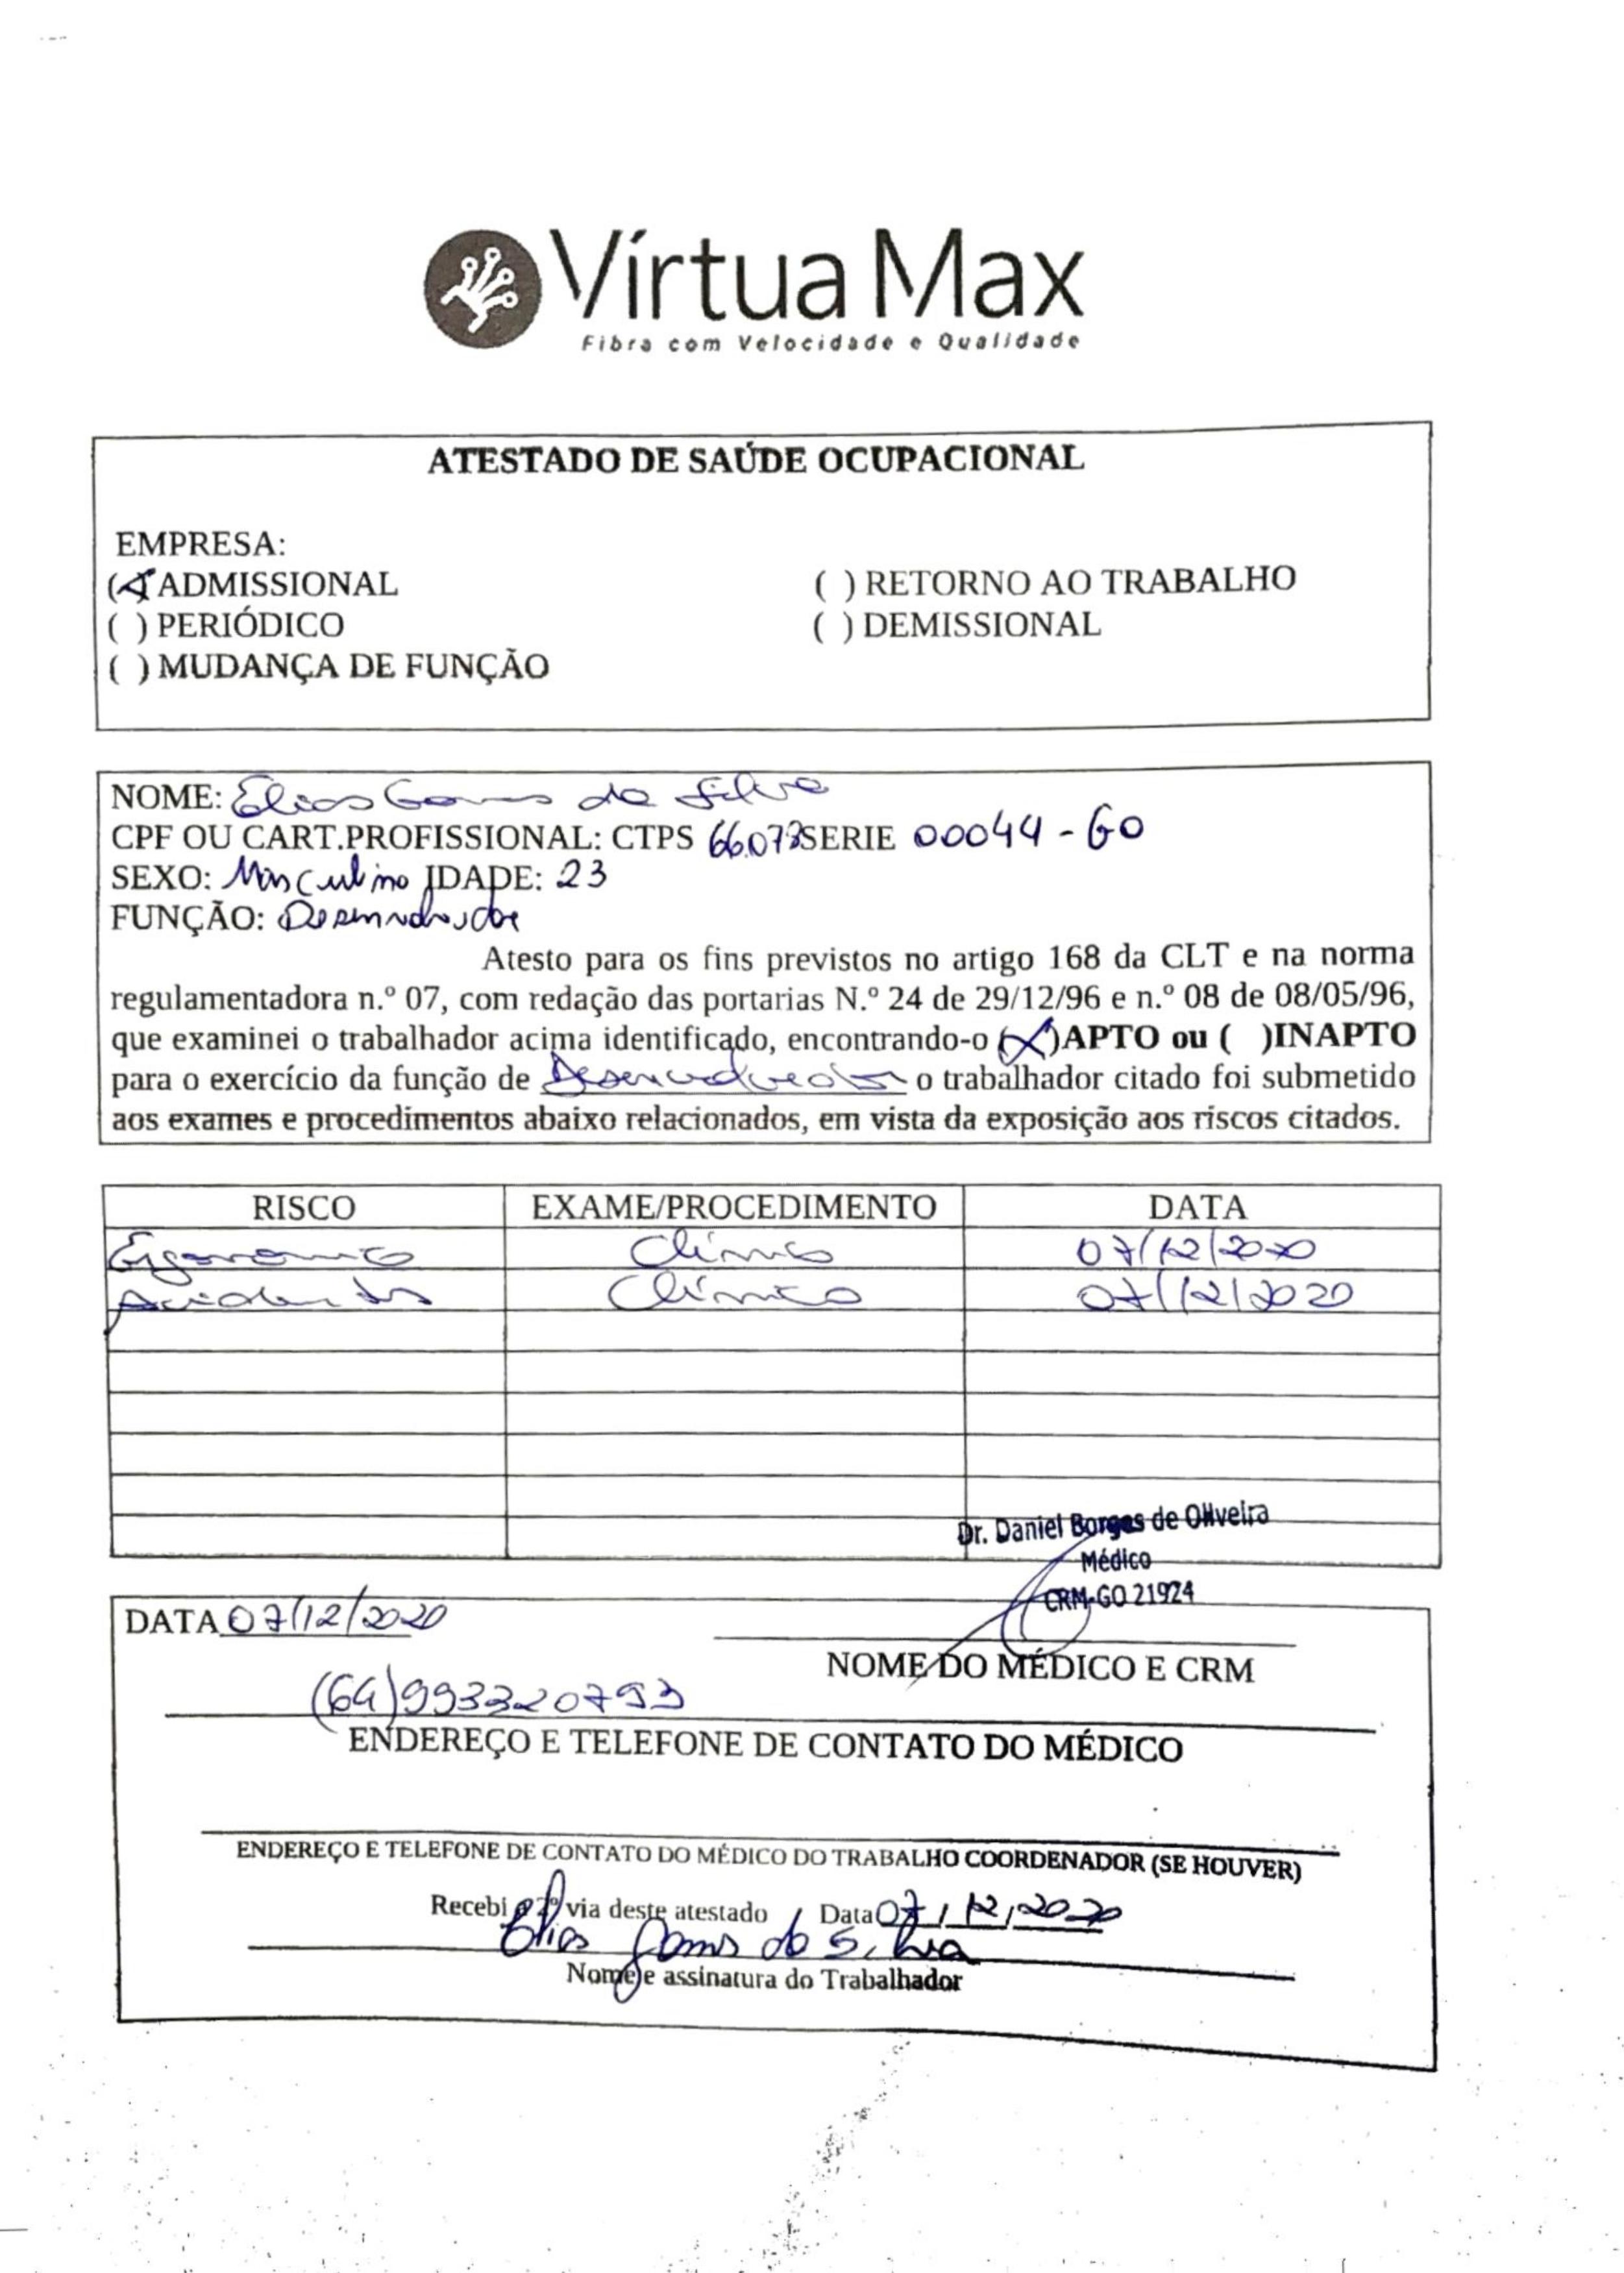 Vírtua Max
Fibra com Velocidade e Qualidade
ATESTADO DE SAÚDE OCUPACIONAL
EMPRESA:
(X) ADMISSIONAL ( ) RETORNO AO TRABALHO
( ) PERIÓDICO ( ) DEMISSIONAL
( ) MUDANÇA DE FUNÇÃO
NOME: Elias Gomes da Silva
CPF OU CART.PROFISSIONAL: CTPS 66.073 SERIE 00044 - GO
SEXO: Masculino IDADE: 23
FUNÇÃO: Desenvolvedor
Atesto para os fins previstos no artigo 168 da CLT e na norma
regulamentadora n.º 07, com redação das portarias N.º 24 de 29/12/96 e n.º 08 de 08/05/96,
que examinei o trabalhador acima identificado, encontrando-o (X) APTO ou ( )INAPTO
para o exercício da função de Desenvolvedor o trabalhador citado foi submetido
aos exames e procedimentos abaixo relacionados, em vista da exposição aos riscos citados.
RISCO EXAME/PROCEDIMENTO DATA
Ergonomico Clínico 07/12/2020
Acidentes Clínico 07/12/2020
Dr. Daniel Borges de Oliveira
Médico
CRM-GO 21924
DATA 07/12/2020
NOME DO MÉDICO E CRM
(64)993320793
ENDEREÇO E TELEFONE DE CONTATO DO MÉDICO
ENDEREÇO E TELEFONE DE CONTATO DO MÉDICO DO TRABALHO COORDENADOR (SE HOUVER)
Recebi a 2º via deste atestado / Data 07/12/2020
Elias Gomes da Silva
Nome e assinatura do Trabalhador